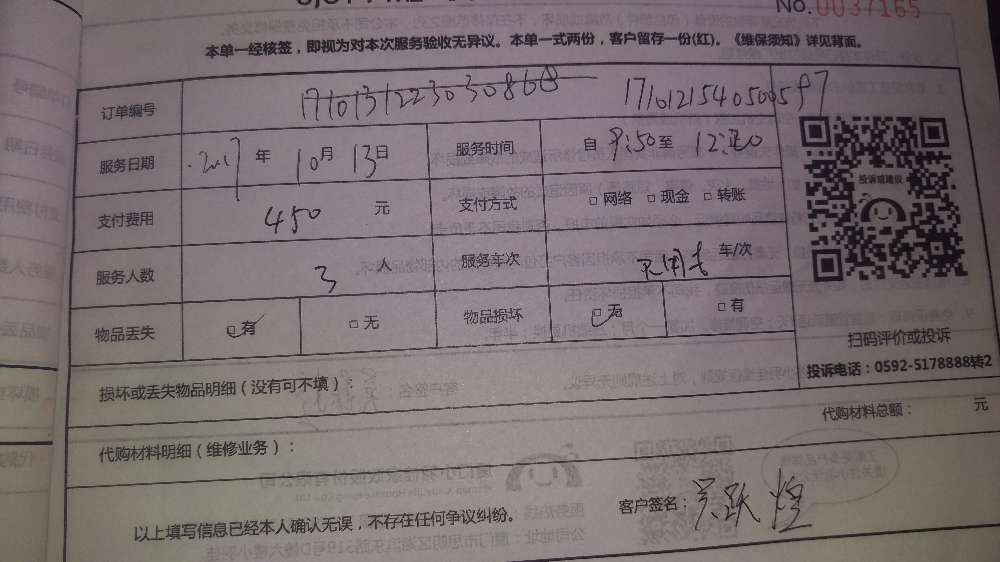 NO.0037165
本单一经核签，即视为对本次服务验收无异议。本单一式两份，客户留存一份(红)。《维保须知》详见背面。
订单编号 1710131223030868 1710121540500597
服务日期 2017 年 10 月 13 日 服务时间 自 9:50 至 12:20
支付费用 450 元 支付方式 □ 网络 □ 现金 □ 转账
服务人数 3 人 服务车次 车/次
物品丢失 □ 有 □ 无 物品损坏 □ 无 □ 有
投诉或建议
扫码评价或投诉
投诉电话：0592-5178888转2
损坏或丢失物品明细（没有可不填）：
代购材料总额： 元
代购材料明细（维修业务）：
以上填写信息已经本人确认无误，不存在任何争议纠纷。 客户签名：吴跃煌